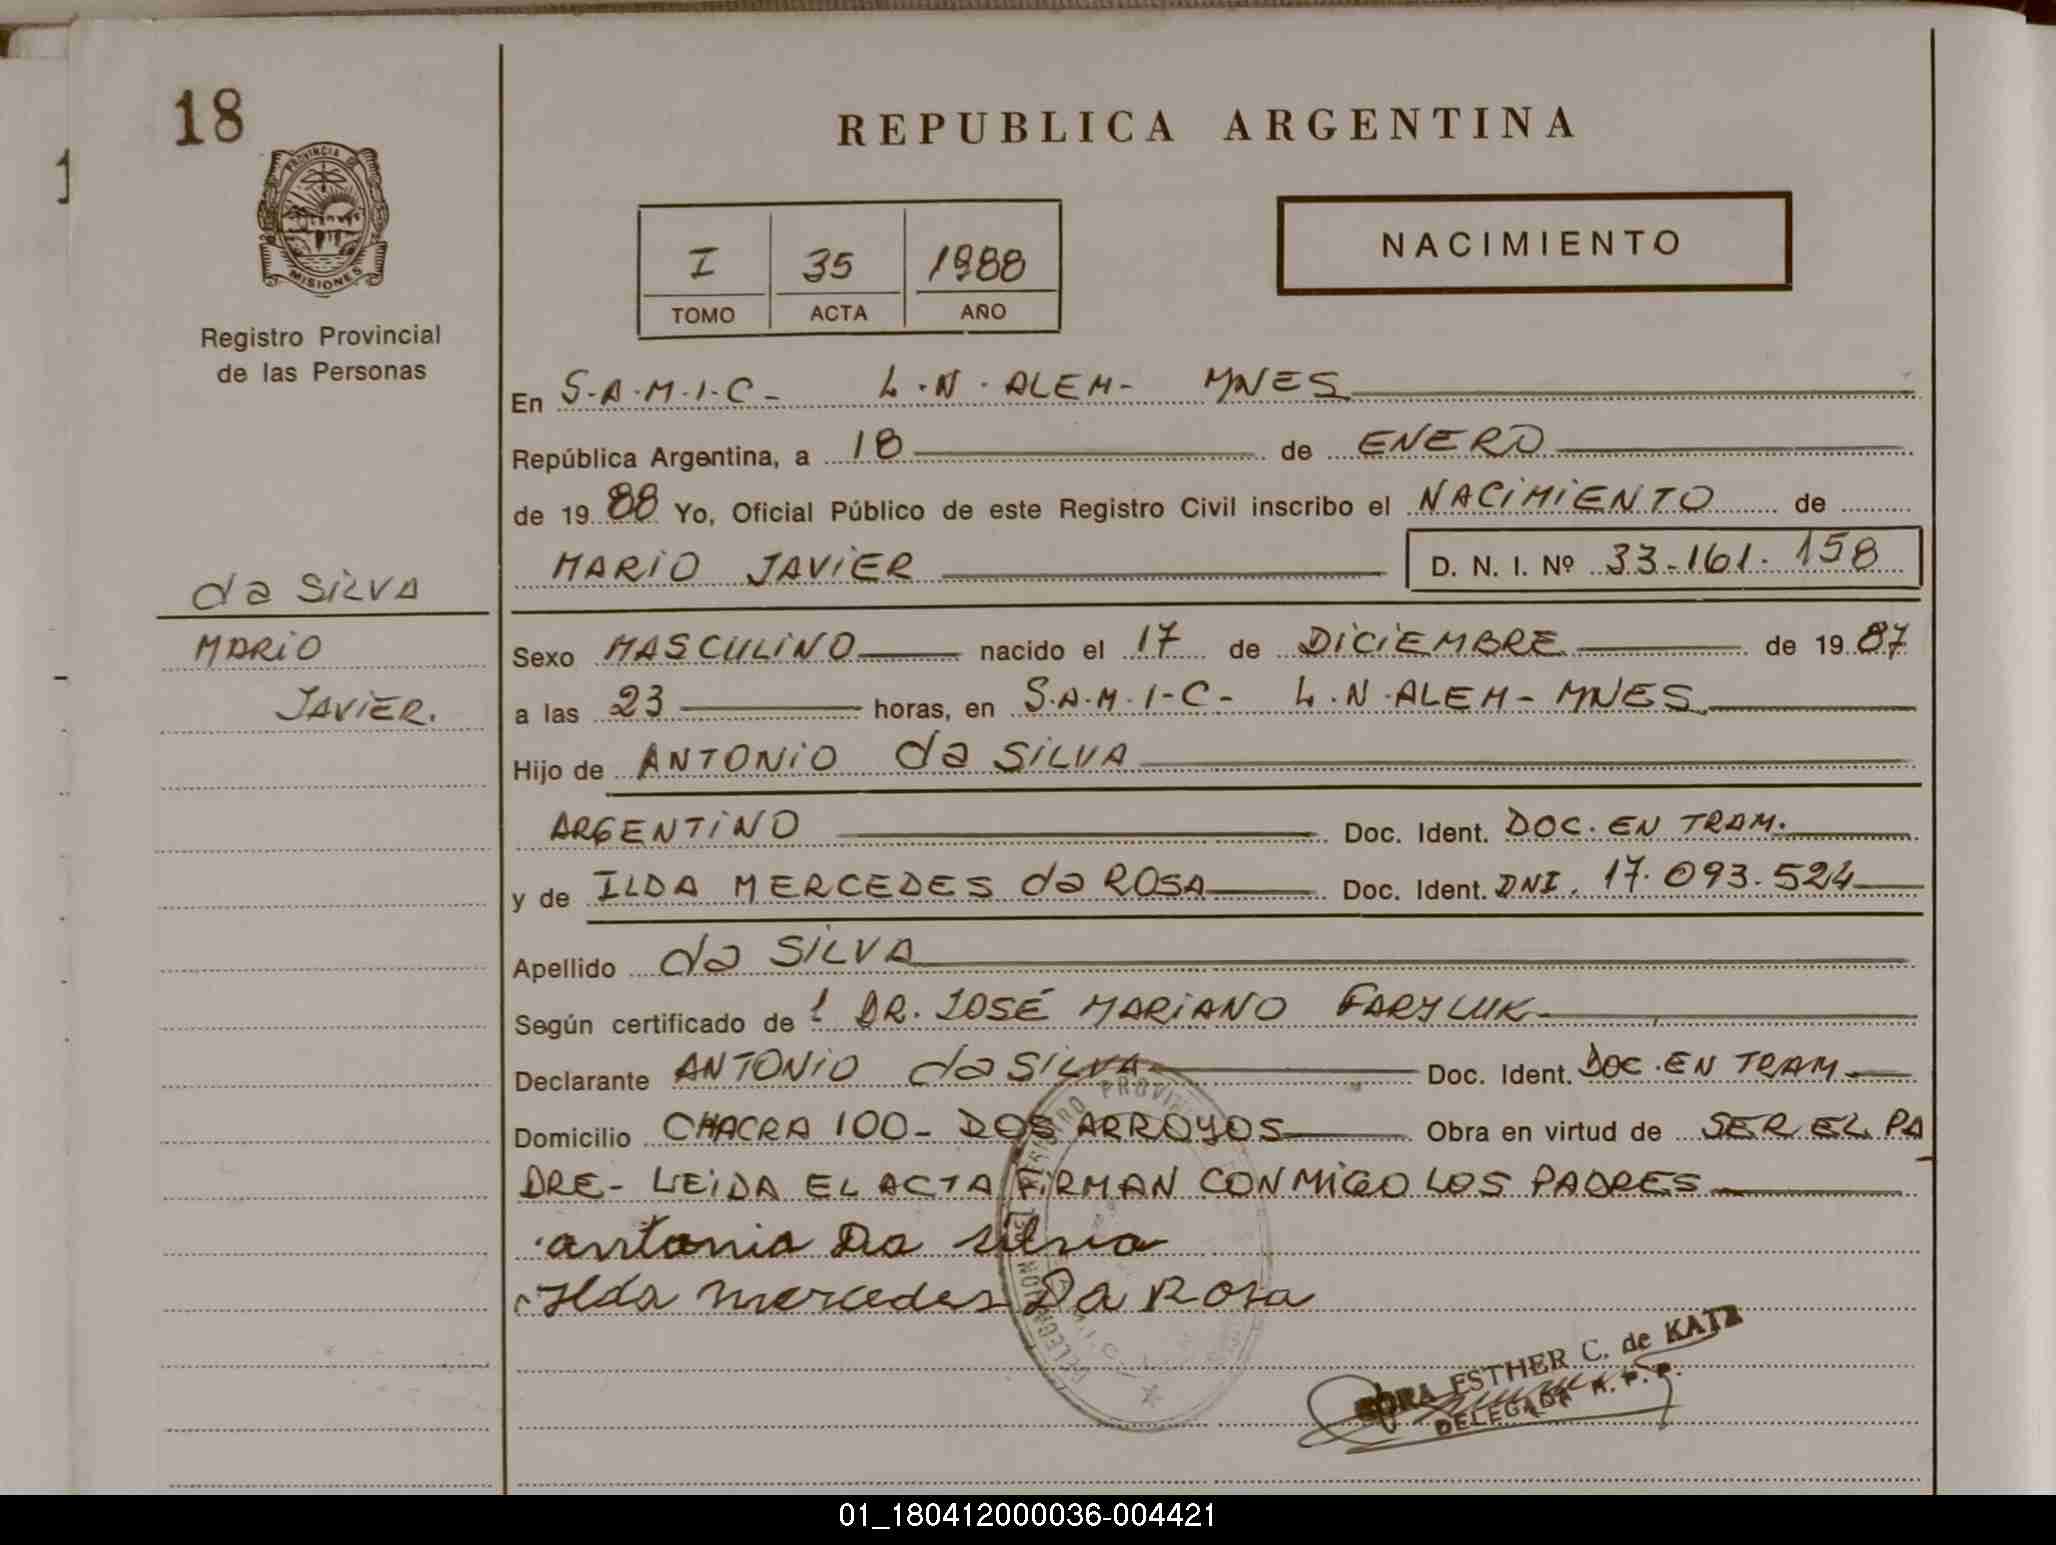 18
PROVINCIA DE
MISIONES
Registro Provincial
de las Personas
da SILVA
MARIO
JAVIER.
REPUBLICA ARGENTINA
I 35 1988
TOMO ACTA AÑO
NACIMIENTO
En S.A.M.I.C- L.N. ALEM- MNES
República Argentina, a 18 de ENERO
de 1988 Yo, Oficial Público de este Registro Civil inscribo el NACIMIENTO de
MARIO JAVIER D. N. I. Nº 33.161.158
Sexo MASCULINO nacido el 17 de DICIEMBRE de 1987
a las 23 horas, en S.A.M.I-C- L.N.ALEM-MNES
Hijo de ANTONIO da SILVA
ARGENTINO Doc. Ident. DOC. EN TRAM.
y de ILDA MERCEDES da ROSA Doc. Ident. DNI. 17.093.524
Apellido da SILVA
Según certificado de l DR. JOSÉ MARIANO FARYLUK
Declarante ANTONIO da SILVA Doc. Ident. DOC.EN TRAM
Domicilio CHACRA 100- DOS ARROYOS Obra en virtud de SER EL PA
DRE- LEIDA EL ACTA FIRMAN CONMIGO LOS PADRES
antonio Da silva
Ilda mercedes Da Rosa
ESTHER C. de KATZ
DELEGADA R. P. P.
01_180412000036-004421